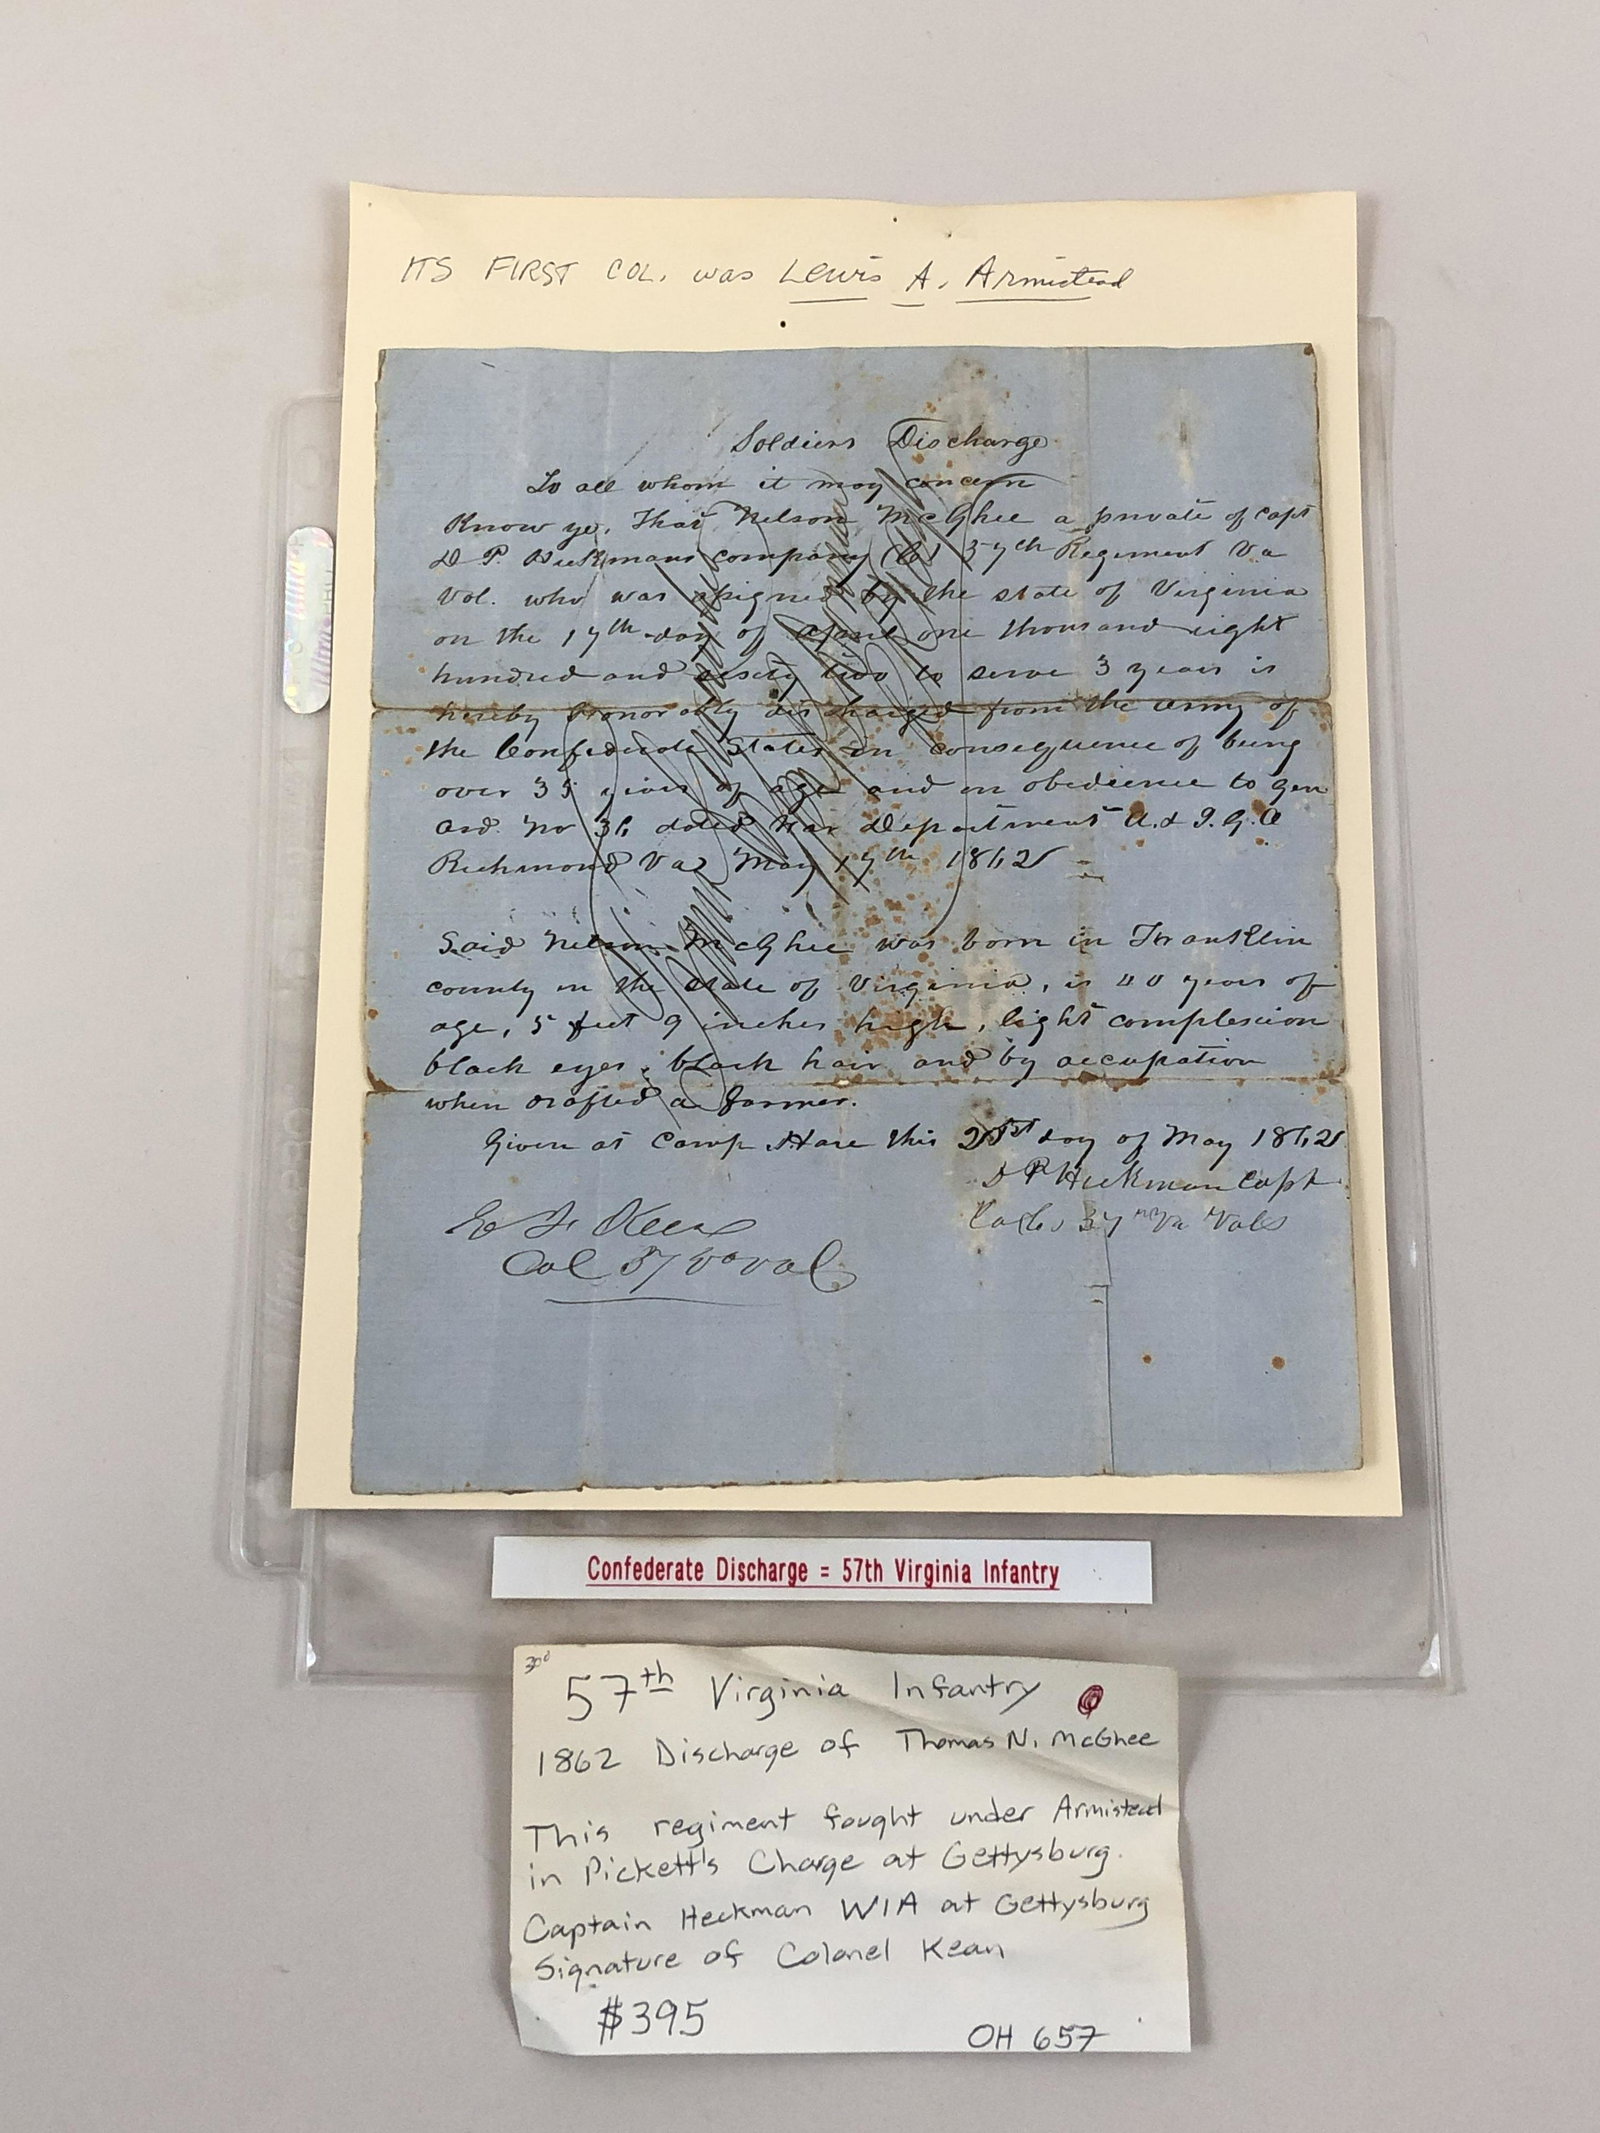 ITS FIRST COL. was Lewis A. Armistead
Soldiers Discharge
To all whom it may concern
Know ye, That Nelson McGhee a private of Capt
D P. Heckmans company 57th Regiment Va
Vol. who was by the state of Virginia
on the 17th day of April one thousand eight
hundred and sixty two to serve 3 years is
hereby honorably discharged from the army of
the Confederate States in consequence of being
over 35 years of age and in obedience to gen
ord. No 36 dated War Department A. & I. G. O
Richmond Va May 17th 1862
Said Nelson McGhee was born in Franklin
county in the state of Virginia, is 40 years of
age, 5 feet 9 inches high, light complexion
black eyes, black hair and by occupation
when drafted a farmer.
Given at Camp this 21st day of May 1862
D P Heckman Capt
57 Va Vols
Col 57 Va Vol
Confederate Discharge = 57th Virginia Infantry
57th Virginia Infantry
1862 Discharge of Thomas N. McGhee
This regiment fought under Armistead
in Pickett's Charge at Gettysburg.
Captain Heckman WIA at Gettysburg
Signature of Colonel Kean
$395
OH 657